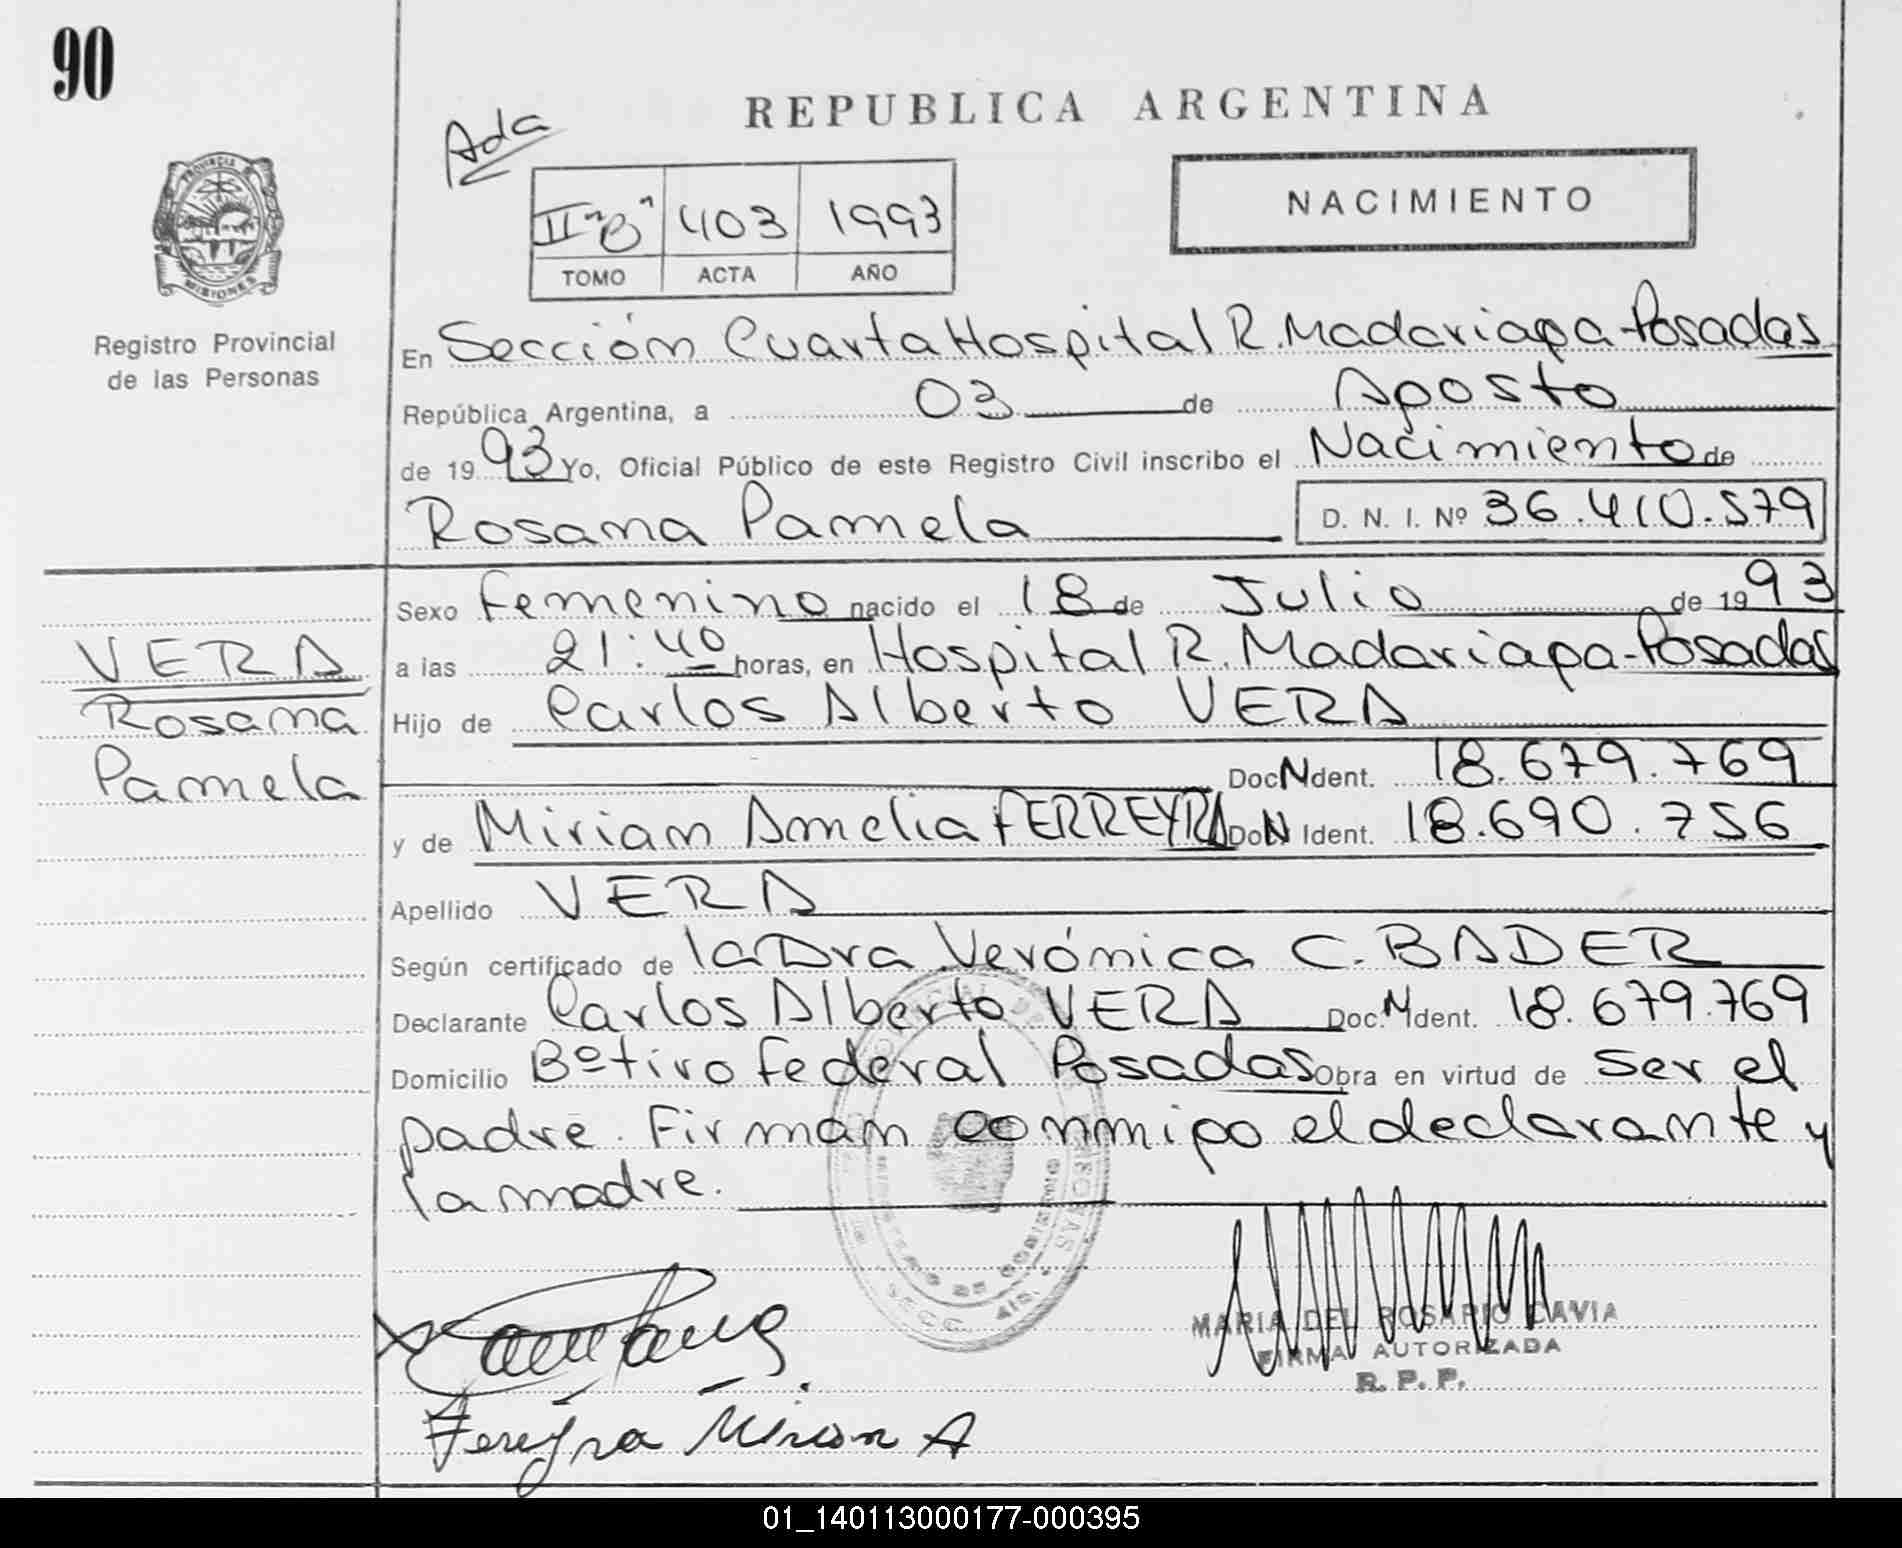 90
REPUBLICA ARGENTINA
Ada
PROVINCIA
MISIONES
II "B" 403 1993
TOMO ACTA AÑO
NACIMIENTO
Registro Provincial
de las Personas
En Sección Cuarta Hospital R. Madariaga - Posadas
República Argentina, a 03 de Agosto
de 19 93 Yo, Oficial Público de este Registro Civil inscribo el Nacimiento de
Rosana Pamela D. N. I. Nº 36.410.579
Sexo Femenino nacido el 18 de Julio de 19 93
a las 21:40 horas, en Hospital R. Madariaga - Posadas
Hijo de Carlos Alberto VERA
Doc N Ident. 18.679.769
y de Miriam Amelia FERREYRA Do N Ident. 18.690.756
Apellido VERA
Según certificado de la Dra Verónica C. BADER
Declarante Carlos Alberto VERA Doc. N Ident. 18.679.769
Domicilio Bº tiro Federal Posadas Obra en virtud de ser el
padre. Firman conmigo el declarante y
la madre.
VERA
Rosana
Pamela
MARIA DEL ROSARIO CAVIA
FIRMA AUTORIZADA
R. P. P.
Fereyra Miriam A
01_140113000177-000395